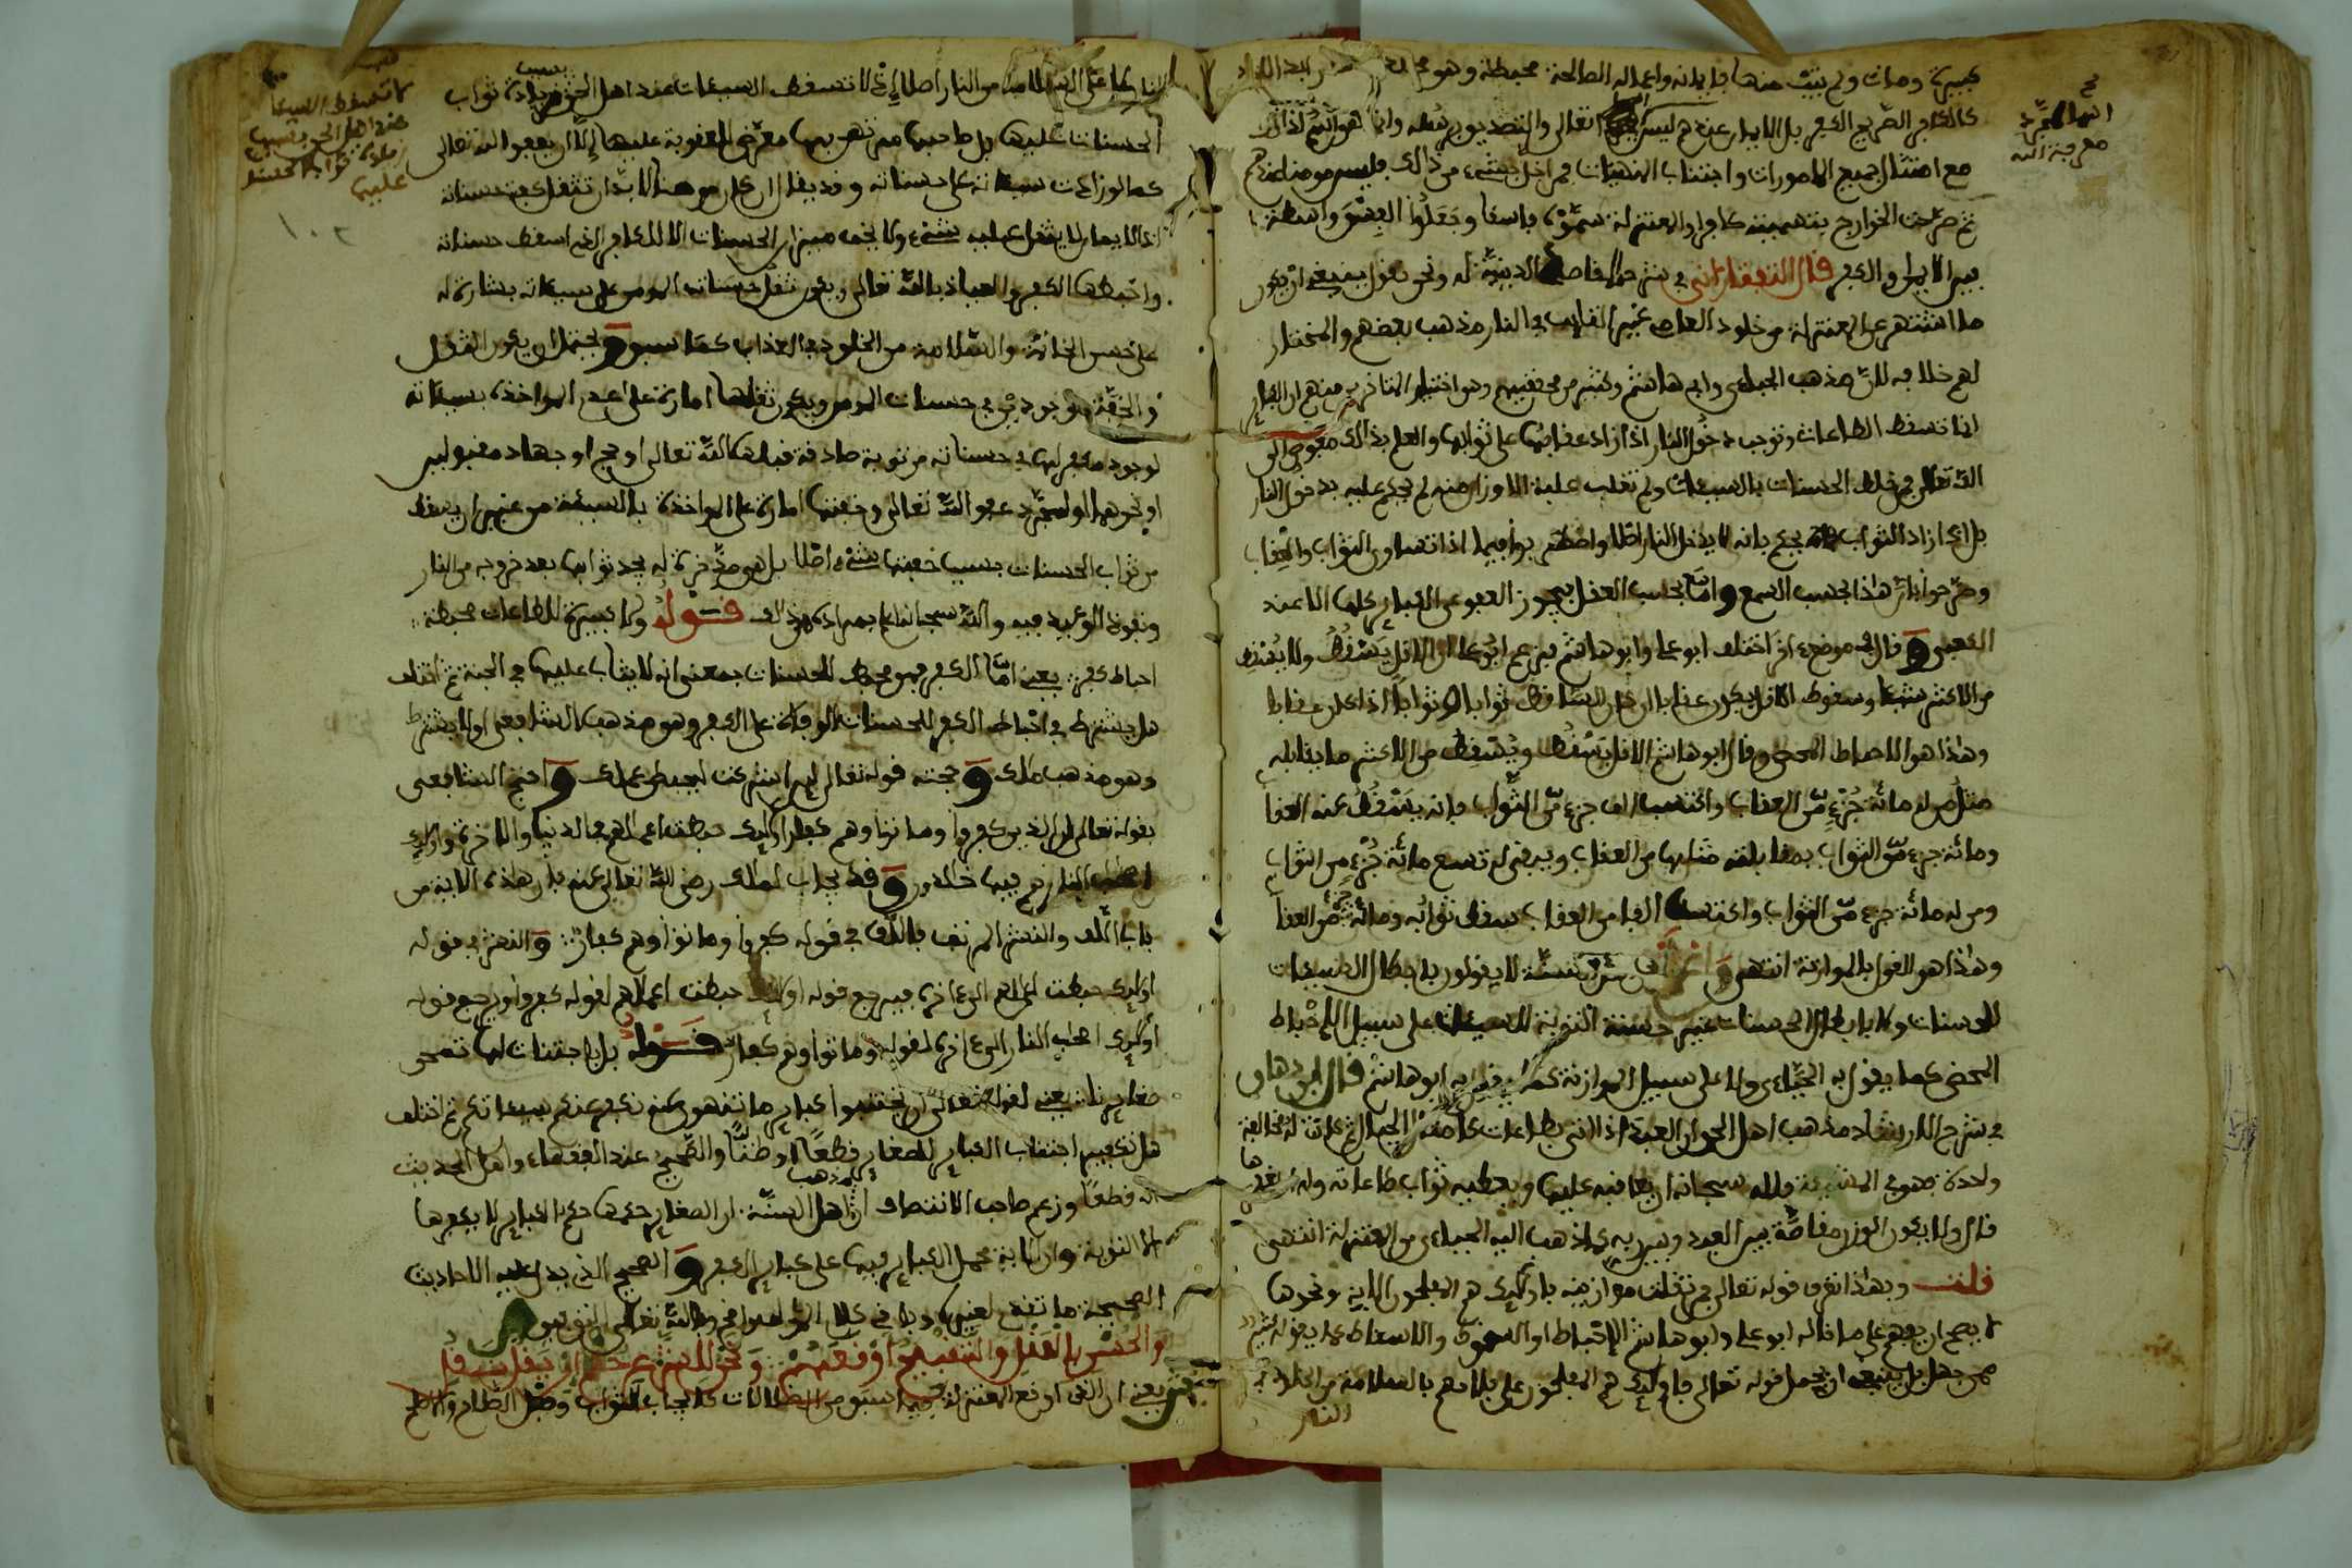 كبيرة ومات ولم يتب منها فإيمانه وأعماله الصالحة محبطة وهو
كالكافر الصريح الكفر بل الايمان عندهم ليس تعالى والتصديق برسله وانما هو اسم لذلك
مع امتثال جميع المامورات واجتناب المنهيات فمن اخل بشيء من ذالك فليس مومنا عندهم
ثم صرحت الخوارج بتسميته كافرا والمعتزلة سموه فاسقا وجعلوا الفسق واسطة
بين الايمان والكفر قال التفتازاني في شرح المقاصد الدينية له ونحن نقول ينبغي ان يكون
ما اشتهر عن المعتزلة من خلود العاصي غير التايب في النار مذهب بعضهم والمختار
لهم خلافه لان مذهب الجباءي وابي هاشم وكثير من محققيهم وهو اختيار المتاخرين منهم ان الكباير
انما تسقط الطاعات وتوجب دخول النار اذا زاد عقابها على ثوابها والعلم بذالك مفوض الى
الله تعالى فمن خلط الحسنات بالسيئات ولم تغلب عليه الاوزار منه لم يحكم عليه بدخول النار
بل اذا زاد الثواب يحكم بانه لا يدخل النار اصلا واضطربوا فيما اذا تساوى الثواب والعقاب
وصرحوا بان هذا بحسب السمع واما بحسب العقل فيجوز العفو عن الكباير كلها الا عند
الكعبي وقال في موضع اخر اختلف ابو علي وابو هاشم فزعم ابو علي ان الاقل يسقط ولا يسقط
من الاكثر شيئا وسقوط الاقل يكون عقابا ان كان الساقط ثوابا او ثوابا اذا كان عقابا
وهذا هو الاحباط المحض وقال ابو هاشم الاقل يسقط ويسقط من الاكثر ما يقابله
مثل من له مائة جزء من العقاب واكتسب الف جزء من الثواب فانه يسقط عنه العقاب
ومائة جزء من الثواب بمقابلته مثلها من العقاب ويبقى له تسع مائة جزء من الثواب
ومن له مائة جزء من الثواب واكتسب الفا من العقاب سقط ثوابه ومائة جزء من العقاب
وهذا هو القول بالموازنة انتهى لا يقولون بابطال السيئات
للحسنات ولا بابطال الحسنات غير حسنة التوبة للسيئات على سبيل الاحباط
المحض كما يقول به الجباءي ولا على سبيل الموازنة كما يقول به ابو هاشم قال ابن دهاق
في شرح الارشاد مذهب اهل الحق ان العبد اذا اتى بطاعات كامثال الجبال ثم كانت له مخالفة
ولحدة فهو في المشيئة فلله سبحانه ان يعاقبه عليها ويعطيه ثواب طاعاته وله
قال ولا يكون الوزن مقاصة بين العبد وبين ربه كما ذهب اليه الجباءي من المعتزلة انتهى
قلت وبهذا تعرف قوله تعالى فمن ثقلت موازينه فاولئك هم المفلحون الاية ونحوها
لا يصح ان يفهم على ما قاله ابو علي وابو هاشم
بل ينبغي ان يحمل قوله تعالى فاولئك هم المفلحون على فلاحهم بالسلامة من الخلود في
النار
انما المجرد
معرفة الله
اصلا اذ لا تسقط السيئات عند اهل الحق بزيادة ثواب
الحسنات عليها بل صاحبها معرض للعقوبة عليها الا ان يعفو الله تعالى
كما لو زادت سيئاته على حسناته وقد يقال ان كل مومن لا بد ان تثقل كفة حسناته
اذ الايمان لا يثقل عليه شيء ولا يخف ميزان الحسنات الا للكافر الذي اسقط حسناته
واحبطها الكفر والعياذ بالله تعالى ويكون ثقل حسنات المومن على سيئاته بشارة له
على حسن الخاتمة والسلامة من الخلود في العذاب كما سبق ويحتمل ان يكون الثقل
والخفة موجودين في حسنات المومن ويكون ثقلها امارة على عدم المواخذة بسيئاته
لوجود مكفر لها في حسناته من توبة صادقة قبلها الله تعالى او حج او جهاد مقبولين
او نحوهما او لمجرد عفو الله تعالى وخفتها امارة على المواخذة بالسيئة من غير ان يسقط
من ثواب الحسنات بسبب خفتها شيء اصلا بل هو مدخر له يجد ثوابها بعد خروجه من النار
ونفوذ الوعيد فيه والله سبحانه اعلم بمراده من ذالك قوله ولا كبيرة للطاعات محبطة
احباط كفر يعني اما الكفر فهو محبط للحسنات بمعنى انه لا يثاب عليها في الجنة ثم اختلف
هل يشترط في احباط الكفر للحسنات الوفاة على الكفر وهو مذهب الشافعي او لا يشترط
وهو مذهب ملك وحجته قوله تعالى لين اشركت ليحبطن عملك واحتج الشافعي
بقوله تعالى ان الذين كفروا وماتوا وهم كفار اوليك حبطت اعمالهم في الدنيا والاخرة واوليك
اصحب النار هم فيها خالدون وقد يجاب لملك رضي الله تعالى عنه بان هذه الاية من
باب اللف والنشر المرتب فاللف في قوله كفروا وماتوا وهم كفار والنشر في قوله
اوليك حبطت اعمالهم الى اخره فيرجع قوله اوليك حبطت اعمالهم لقوله كفروا ويرجع قوله
اوليك اصحب النار الى اخره لقوله وماتوا وهم كفار قوله بل باجتناب لها تمحى
صغايرنا يعني لقوله تعالى ان تجتنبوا كباير ما تنهون عنه نكفر عنكم سيئاتكم ثم اختلف
هل تكفير اجتناب الكباير للصغاير قطعا او ظنا والصحيح عند الفقهاء واهل الحديث
انه قطعا وزعم صاحب الانتصاف ان مذهب اهل السنة ان الصغاير حكمها حكم الكباير لا يكفرها
الا التوبة وان الاية محمل الكباير فيها على كباير الكفر والصحيح الذي يدل عليه الاحاديث
الصحيحة ما تقدم لغيره وبالله تعالى التوفيق
والحسن بالعقل والتقبيح اوقعهم
يعني ان الذي اوقع المعتزلة فيما سبق من الضلالات كايجاب الثواب وفعل الصلاح والاصلح
لا تسقط السيئات
عند اهل الحق بسبب
زيادة ثواب الحسنات
عليها
١٠٢